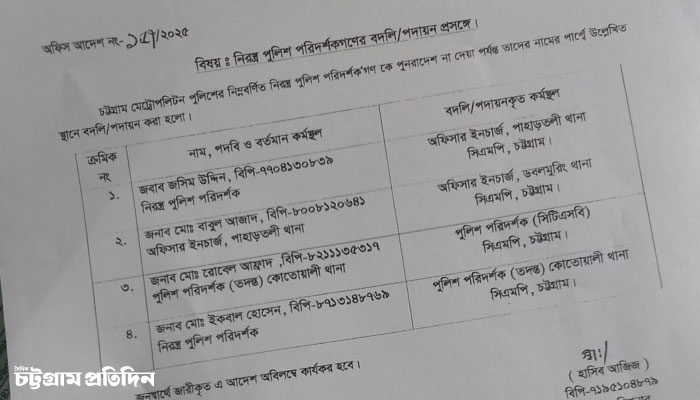 অফিস আদেশ নং- /২০২৫
বিষয় : নিরস্ত্র পুলিশ পরিদর্শকগণের বদলি/পদায়ন প্রসঙ্গে।
চট্টগ্রাম মেট্রোপলিটন পুলিশের নিম্নবর্ণিত নিরস্ত্র পুলিশ পরিদর্শকগণ কে পুনরাদেশ না দেয়া পর্যন্ত তাদের নামের পার্শ্বে উল্লেখিত
স্থানে বদলি/পদায়ন করা হলো।
ক্রমিক
নং
নাম, পদবি ও বর্তমান কর্মস্থল
বদলি/পদায়নকৃত কর্মস্থল
১.
জনাব জসিম উদ্দিন, বিপি-৭৭০৪১৩০৮৩৯
নিরস্ত্র পুলিশ পরিদর্শক
অফিসার ইনচার্জ, পাহাড়তলী থানা
সিএমপি, চট্টগ্রাম।
২.
জনাব মোঃ বাবুল আজাদ, বিপি-৮০০৮১২০৬৪১
অফিসার ইনচার্জ, পাহাড়তলী থানা
অফিসার ইনচার্জ, ডবলমুরিং থানা
সিএমপি, চট্টগ্রাম।
৩.
জনাব মোঃ আহ্মাদ, বিপি-৮২১১১৩৫৩১৭
পুলিশ পরিদর্শক (তদন্ত) কোতোয়ালী থানা
পুলিশ পরিদর্শক (সিটিএসবি)
সিএমপি, চট্টগ্রাম।
৪.
জনাব মোঃ ইকবাল হোসেন, বিপি-৮৭১৩১৪৮৭৬৯
নিরস্ত্র পুলিশ পরিদর্শক
পুলিশ পরিদর্শক (তদন্ত) কোতোয়ালী থানা
সিএমপি, চট্টগ্রাম।
জনস্বার্থে জারীকৃত এ আদেশ অবিলম্বে কার্যকর হবে।
স্বা:/
( হাসিব আজিজ )
বিপি-৭১৯৫১০৪৮৭৯
দৈনিক
চট্টগ্রাম প্রতিদিন